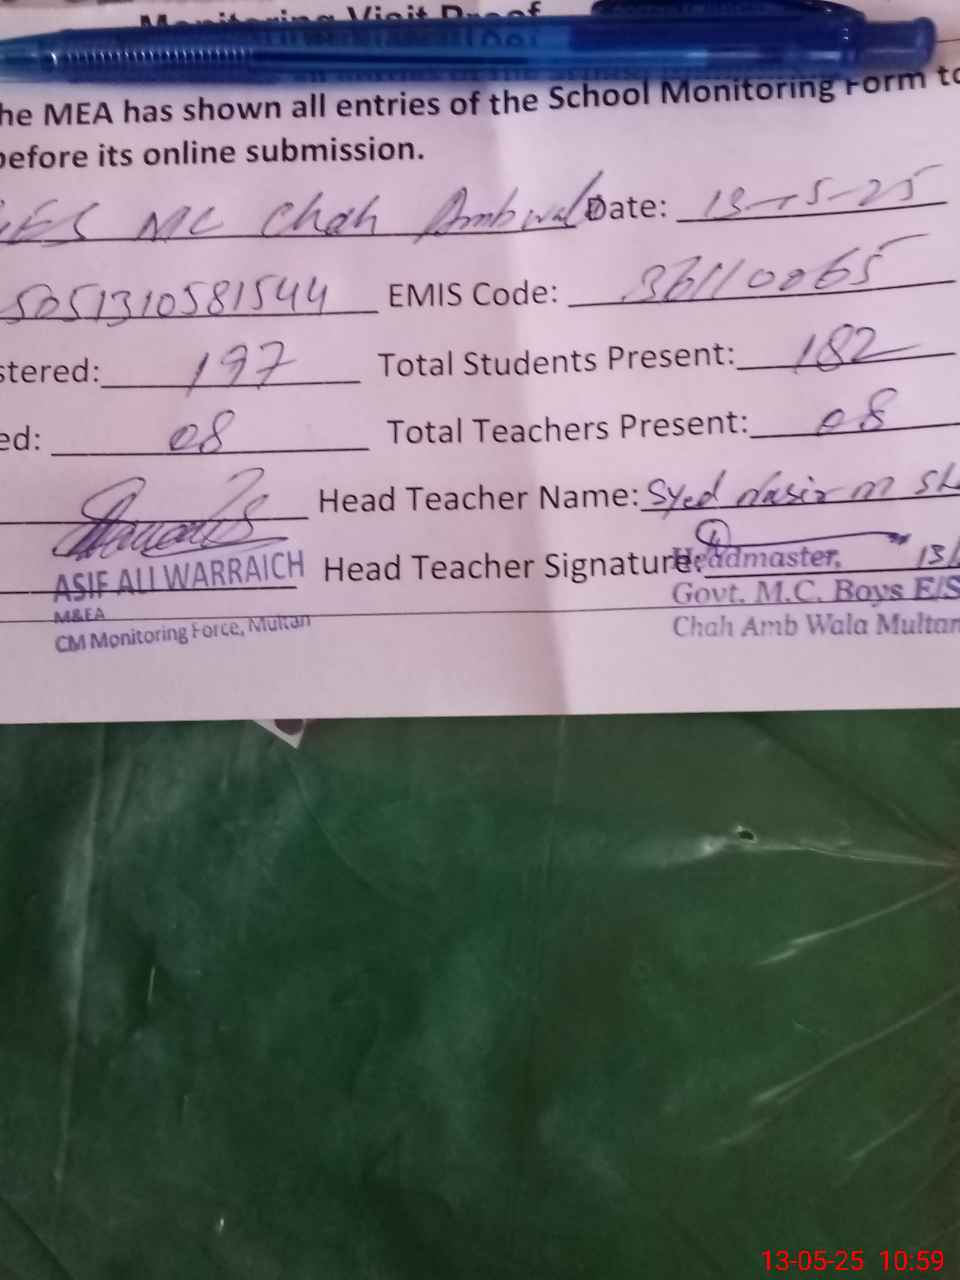 Monitoring Visit Proof
he MEA has shown all entries of the School Monitoring Form to
before its online submission.
GES MC Chah Ambwala Date: 13-5-25
5051310581544 EMIS Code: 36110065
stered: 197 Total Students Present: 182
ed: 08 Total Teachers Present: 08
Head Teacher Name: Syed Nasir M
Head Teacher Signature: Headmaster, 13/
ASIF ALI WARRAICH
M&EA
CM Monitoring Force, Multan
Govt. M.C. Boys E/S
Chah Amb Wala Multan
13-05-25 10:59